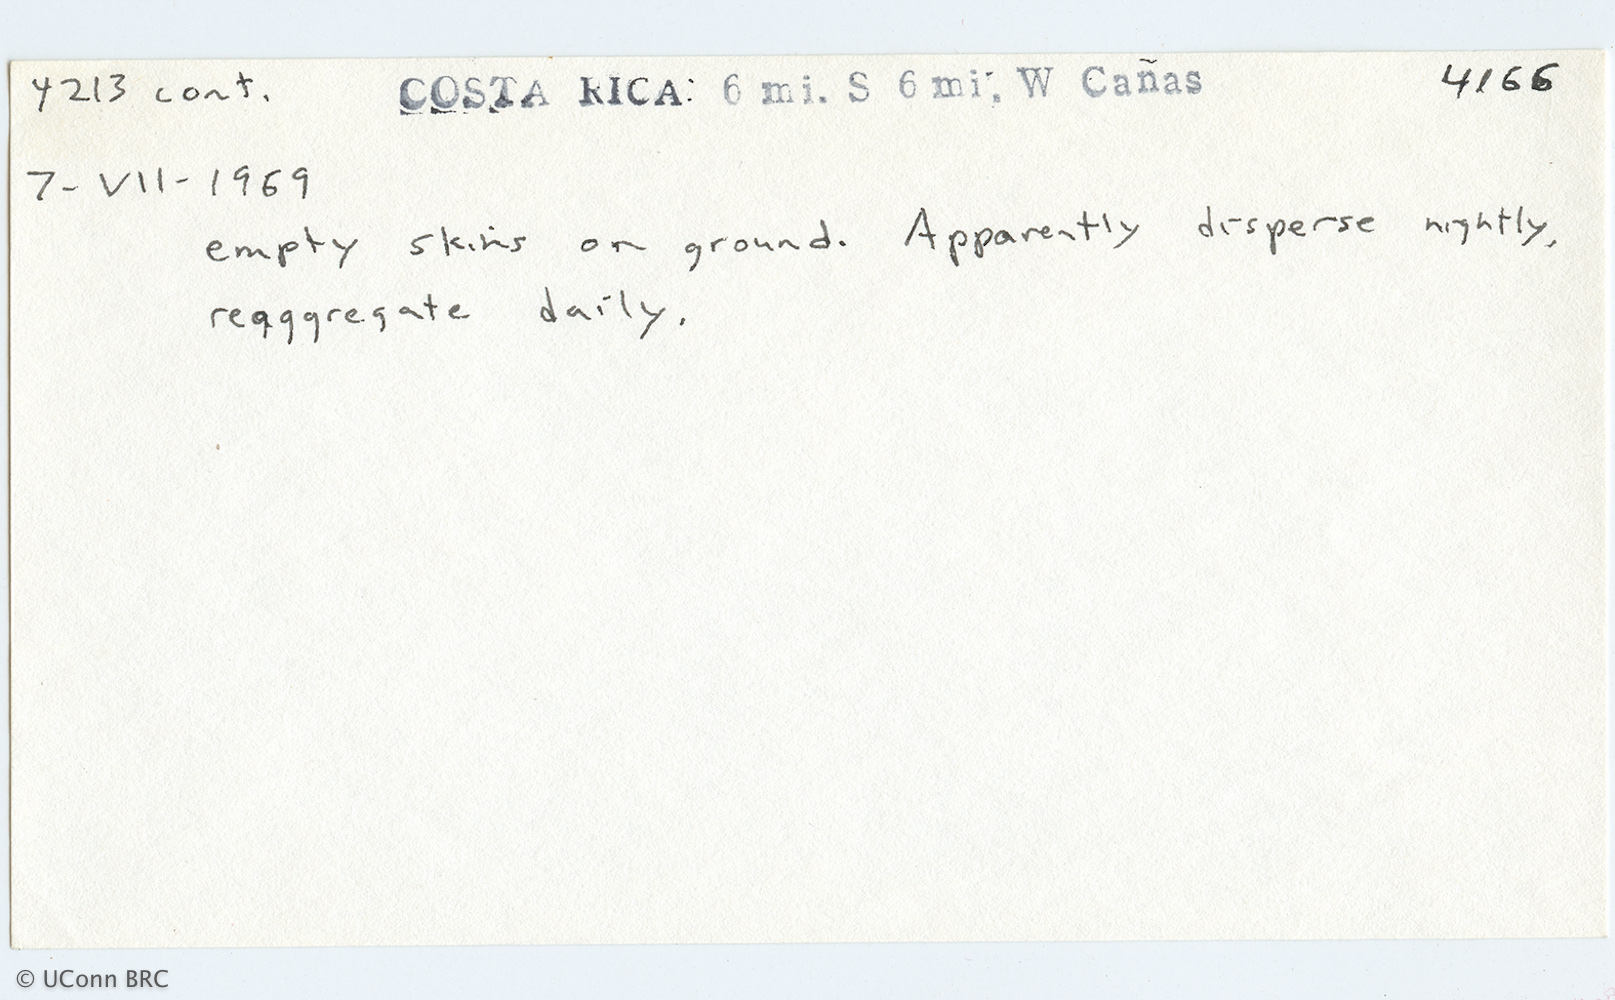 4213 cont. COSTA RICA: 6 mi. S 6 mi. W Cañas 4166
7-VII-1969
empty skins on ground. Apparently disperse nightly,
reaggregate daily.
© UConn BRC